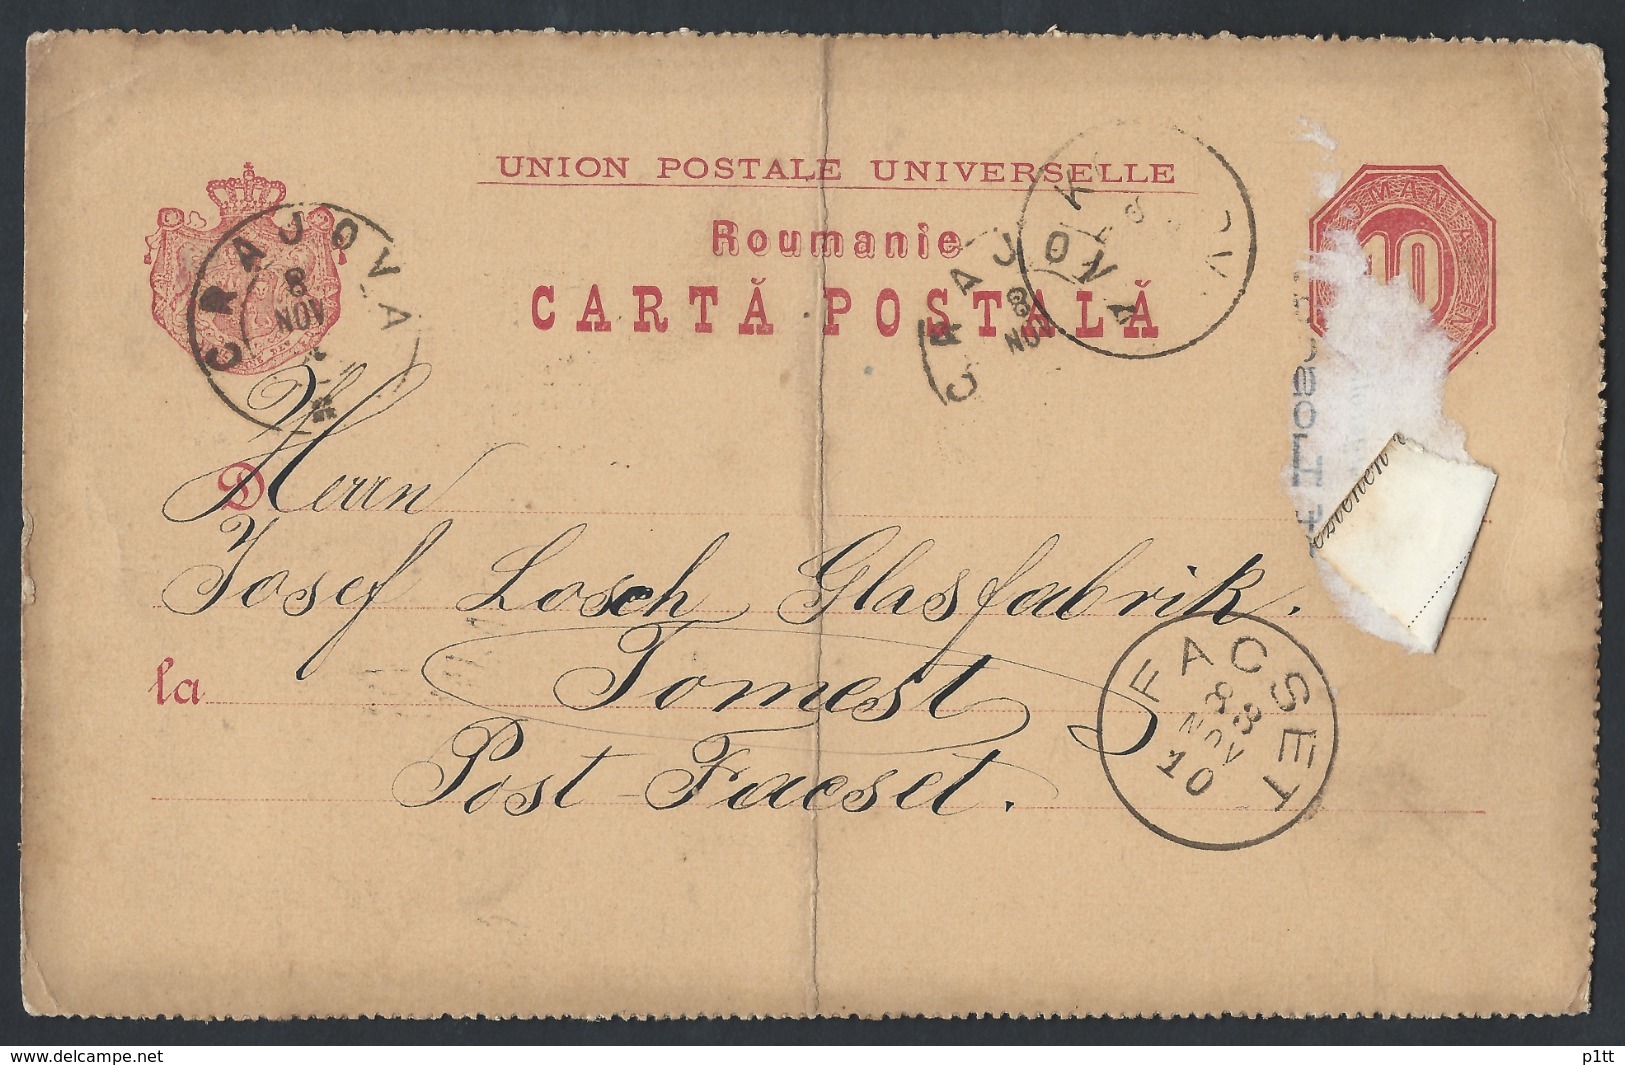 UNION POSTALE UNIVERSELLE
Roumanie
CARTĂ POSTALĂ
ROMANIA
10
CRAJOVA
8
NOV
CRAJOVA
8
NOV
D Herrn
Josef Losch Glasfabrik.
la Tomest
Post Facset.
FACSET
88
NOV
10
www.delcampe.net
p1tt